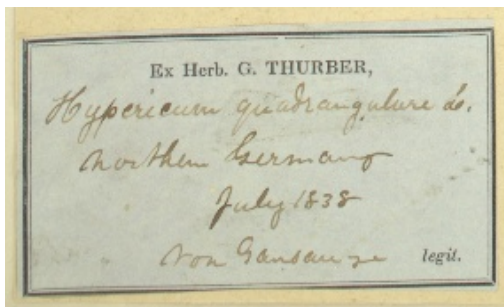 Ex Herb. G. THURBER,
Hypericum quadrangulare L.
Northern Germany
July 1838
Von Gansauge legit.